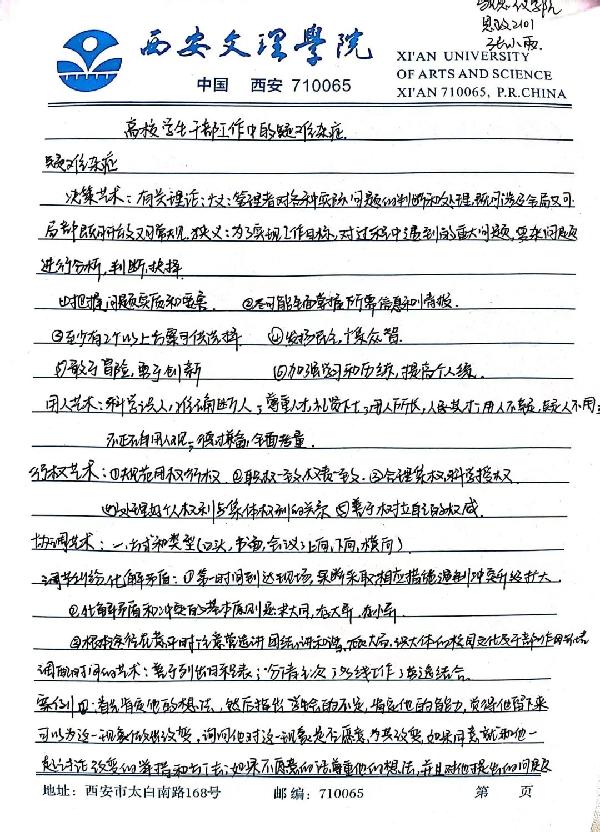 思政学院
思政2101
张小雨
西安文理學院
中国 西安 710065
XI'AN UNIVERSITY
OF ARTS AND SCIENCE
XI'AN 710065, P.R.CHINA
高校学生干部工作中的疑难杂症
疑难杂症
决策艺术:有关理论:广义:管理者对各种实际问题的判断和处理,既可涉及全局又可
局部既可开放又可常规.狭义:为了实现工作目标,对过程中遇到的重大问题,复杂问题
进行分析,判断,抉择.
①把握问题实质和要害 ②尽可能全面掌握所需信息和情报.
③至少有2个以上方案可供选择 ④发扬民主,集众智.
⑤敢于冒险,勇于创新 ⑥加强学习和历练,提高个人
用人艺术:科学识人,准确断人;尊重人才,礼贤下士;用人所长,人尽其才;用人不疑,疑人不用;
不正自用人观;德才兼备,全面考量.
行权艺术:①规范用权行权 ②职权一致权责一致 ③合理集权,科学授权
④处理好个人权利与集体权利的关系 ⑤善于树立自己的权威
协调艺术:一、方式和类型(口头,书面,会议;上向,下向,横向)
调节纠纷化解矛盾:①第一时间到达现场,果断采取相应措施遏制冲突升级扩大
②化解矛盾和冲突的基本原则是求大同,存大异,存小异
③根本途径在于平时注意营造讲团结,讲和谐,顾大局,识大体的校园文化及干部作用
调配时间的艺术:善于列出日程表;分清主次;以线工作;劳逸结合.
案例四:首先肯定他的想法,然后指出学生会的不足,肯定他的能力,觉得他留下来
可以为这一现象做出改变,询问他对这一现象是否愿意为其改变,如果同意,就和他一
起讨论改变的举措和方法;如果不愿意的话尊重他的想法,并且对他提出的问题
地址:西安市太白南路168号 邮编:710065 第 页